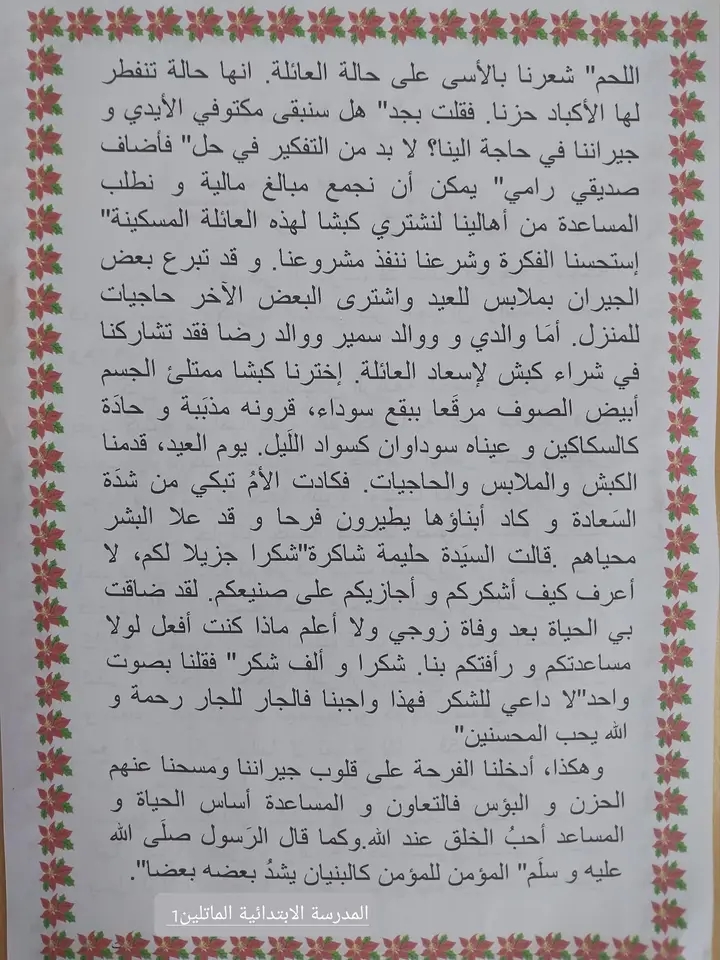 اللحم" شعرنا بالأسى على حالة العائلة. انها حالة تنفطر
لها الأكباد حزنا. فقلت بجد" هل سنبقى مكتوفي الأيدي و
جيراننا في حاجة الينا؟ لا بد من التفكير في حل" فأضاف
صديقي رامي" يمكن أن نجمع مبالغ مالية و نطلب
المساعدة من أهالينا لنشتري كبشا لهذه العائلة المسكينة"
إستحسنا الفكرة وشرعنا ننفذ مشروعنا. و قد تبرع بعض
الجيران بملابس للعيد واشترى البعض الآخر حاجيات
للمنزل. أمَا والدي و ووالد سمير ووالد رضا فقد تشاركنا
في شراء كبش لإسعاد العائلة. إخترنا كبشا ممتلئ الجسم
أبيض الصوف مرقَعا ببقع سوداء، قرونه مذبَبة و حادَة
كالسكاكين و عيناه سوداوان كسواد اللَيل. يوم العيد، قدمنا
الكبش والملابس والحاجيات. فكادت الأمُ تبكي من شدَة
السَعادة و كاد أبناؤها يطيرون فرحا و قد علا البشر
محياهم .قالت السيَدة حليمة شاكرة"شكرا جزيلا لكم، لا
أعرف كيف أشكركم و أجازيكم على صنيعكم. لقد ضاقت
بي الحياة بعد وفاة زوجي ولا أعلم ماذا كنت أفعل لولا
مساعدتكم و رأفتكم بنا. شكرا و ألف شكر" فقلنا بصوت
واحد"لا داعي للشكر فهذا واجبنا فالجار للجار رحمة و
الله يحب المحسنين"
و هكذا، أدخلنا الفرحة على قلوب جيراننا ومسحنا عنهم
الحزن و البؤس فالتعاون و المساعدة أساس الحياة و
المساعد أحبُ الخلق عند الله.وكما قال الرَسول صلَى الله
عليه و سلَم" المؤمن للمؤمن كالبنيان يشدُ بعضه بعضا".
المدرسة الابتدائية الماتلين1